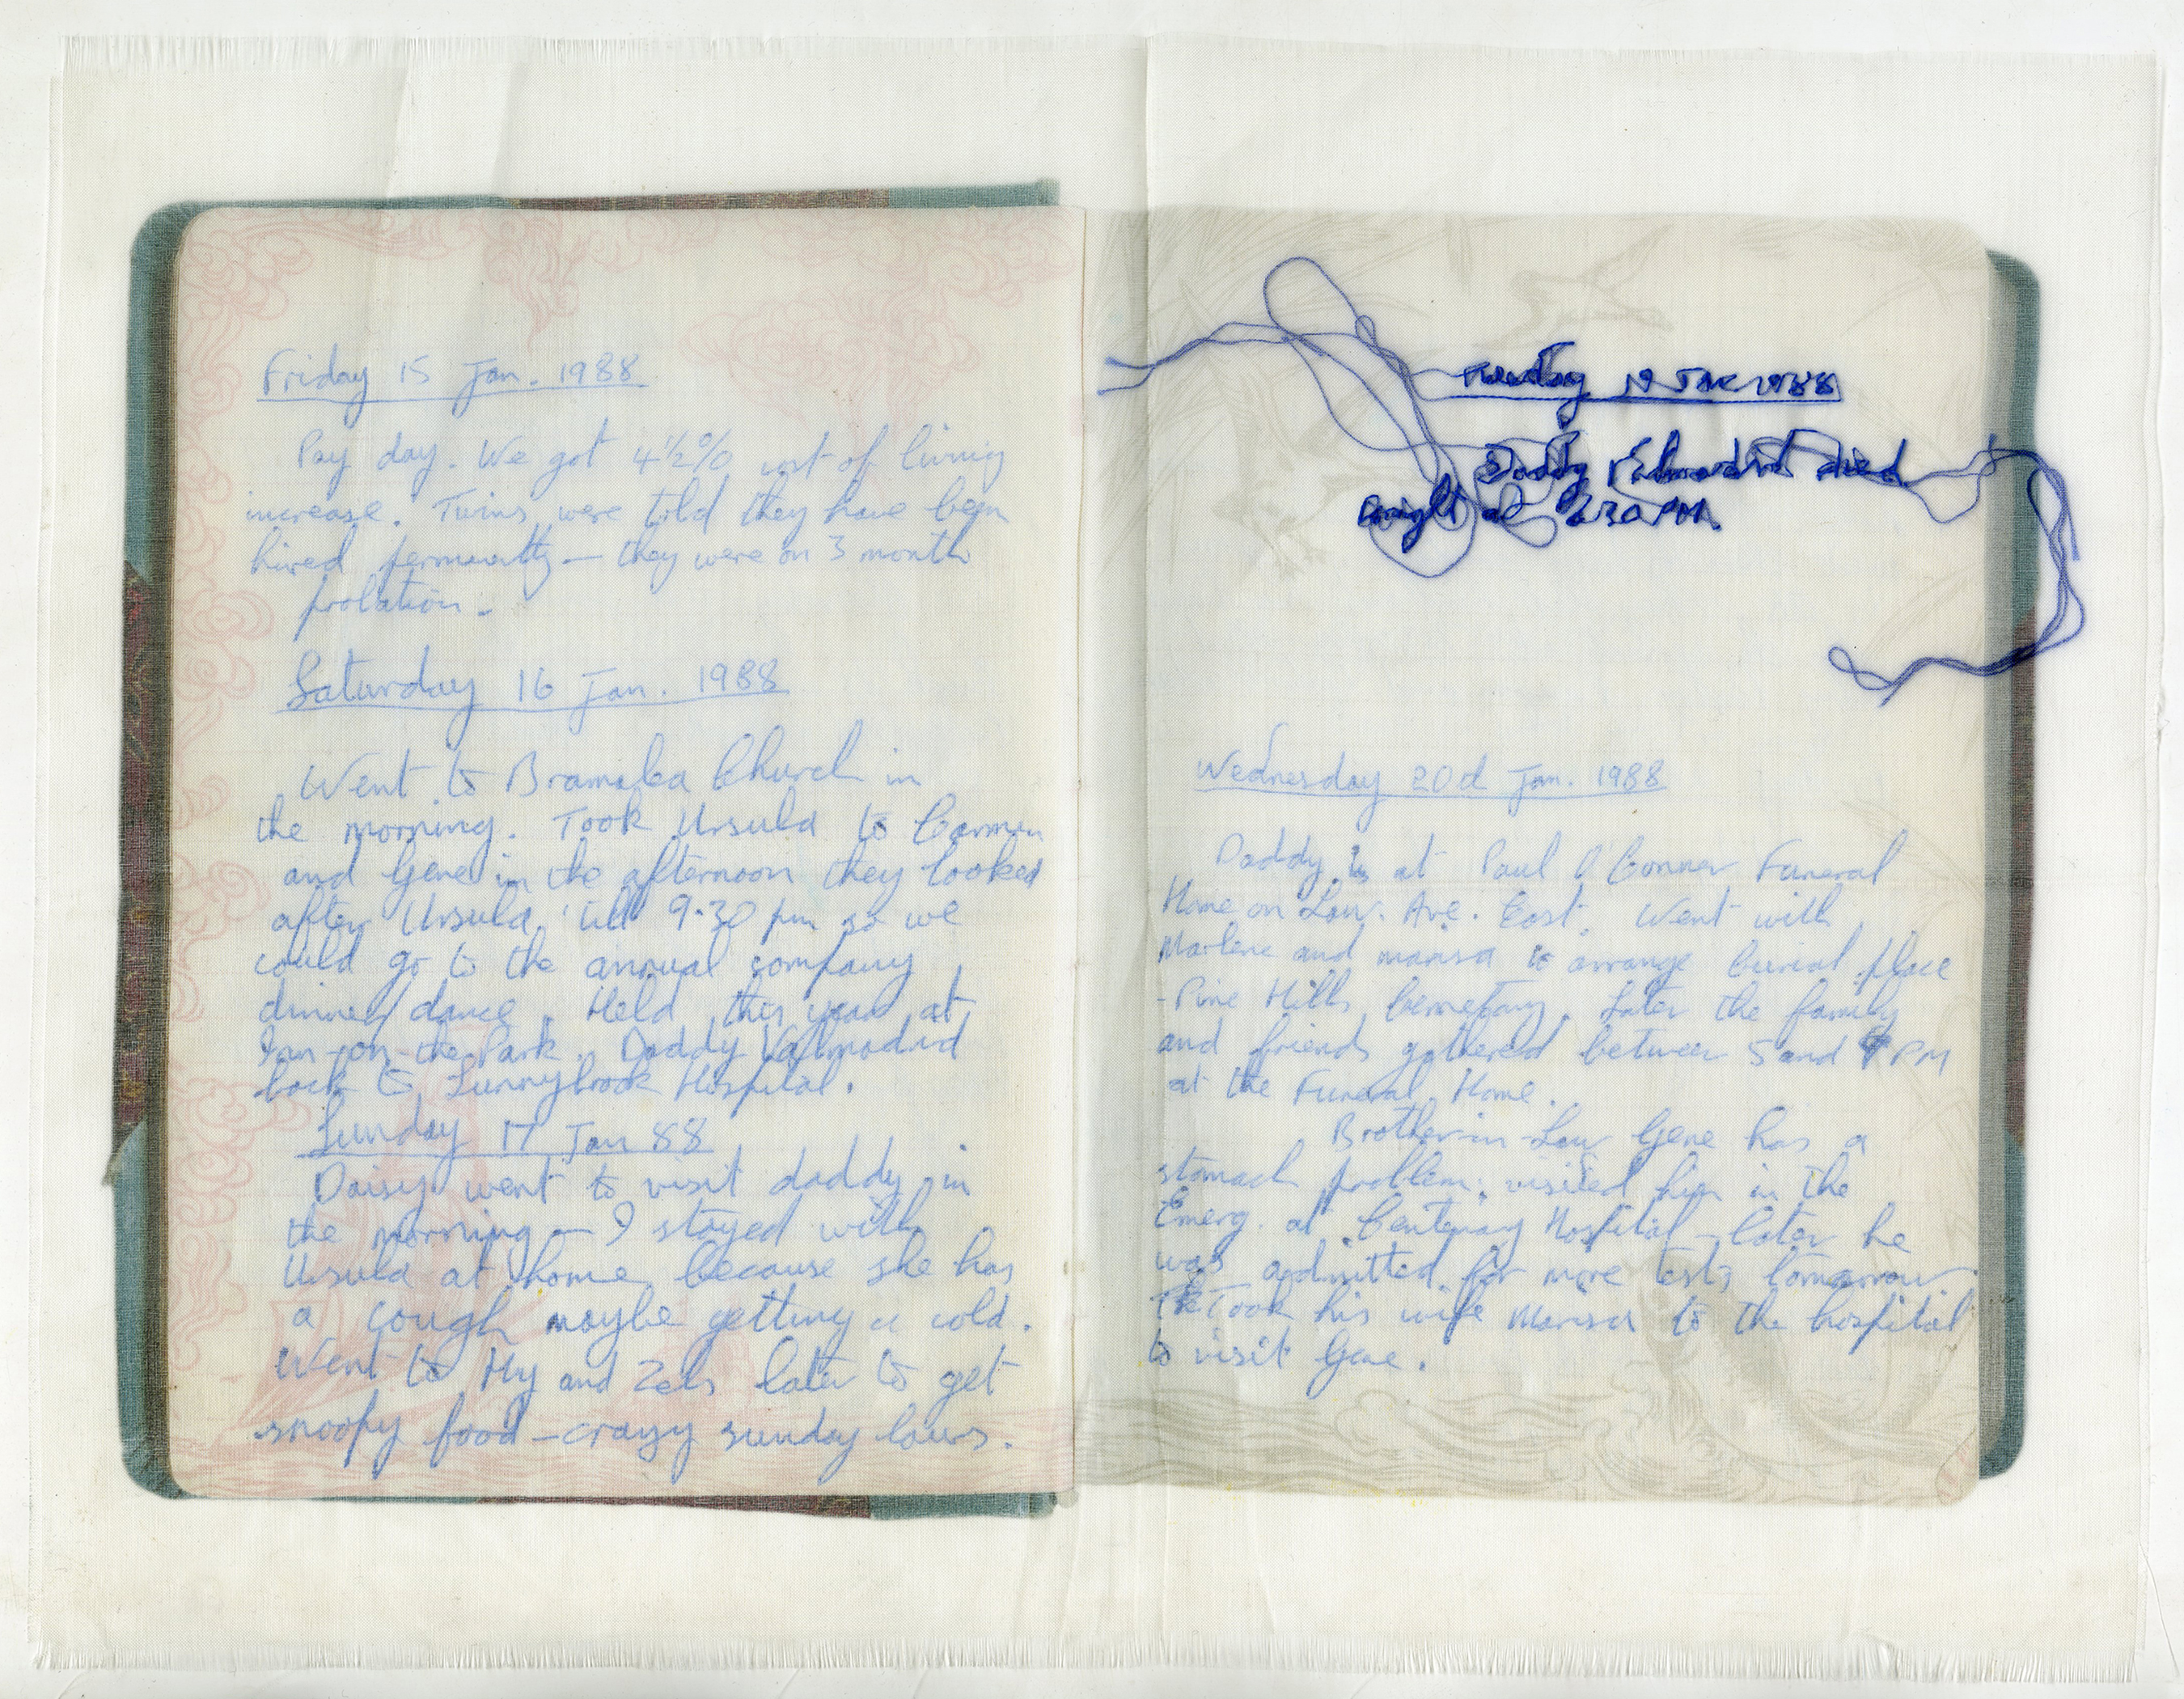 Friday 15 Jan. 1988
Pay day. We got 4½% cost of living
increase. Twins were told they have been
hired permenatly - they were on 3 month
probation.
Saturday 16 Jan. 1988
Went to Bramalea Church in
the morning. Took Ursula to Carmen
and Gene in the afternoon they looked
after Ursula 'till 9.30 pm so we
could go to the annual company
dinner/dance. Held this year at
Inn-on-the Park. Daddy Vallmadrid
back to Sunnybrook Hospital.
Sunday 17 Jan 88
Daisy went to visit daddy in
the morning - I stayed with
Ursula at home because she has
a cough maybe getting a cold.
Went to Hy and Zels later to get
snoopy food - crazy sunday laws.
Tuesday 19 Jan 1988
Daddy died
tonight at PM.
Wednesday 20d Jan. 1988
Daddy is at Paul O'Conner Funeral
Home on Law. Ave. East. Went with
Marlene and marisa to arrange burial place
- Pine Hills Cemetary. Later the family
and friends gathered between 5 and 9 PM
at the Funeral Home.
Brother-in-Law Gene has a
stomach problem; visited him in the
Emerg. at Centenary Hospital - later he
was admitted for more tests tomorrow.
Took his wife Marisa to the hospital
to visit Gene.